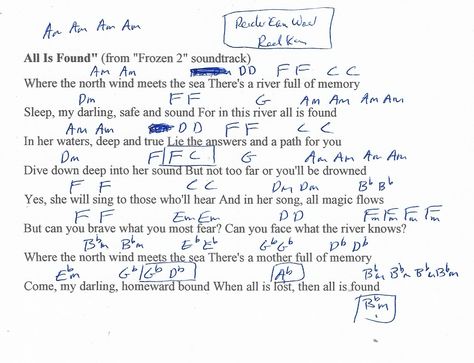 Am Am Am Am
Read Ken
All Is Found" (from "Frozen 2" soundtrack)
Am Am DD F F C C
Where the north wind meets the sea There's a river full of memory
Dm F F G Am Am Am Am
Sleep, my darling, safe and sound For in this river all is found
Am Am DD F F C C
In her waters, deep and true Lie the answers and a path for you
Dm F F C G Am Am Am Am
Dive down deep into her sound But not too far or you'll be drowned
F F C C Dm Dm Bb Bb
Yes, she will sing to those who'll hear And in her song, all magic flows
F F Em Em DD Fm Fm Fm Fm
But can you brave what you most fear? Can you face what the river knows?
Bbm Bbm Eb Eb Gb Gb Db Db
Where the north wind meets the sea There's a mother full of memory
Ebm Gb Gb Db Ab Bbm Bbm Bbm Bbm
Come, my darling, homeward bound When all is lost, then all is found
Bbm